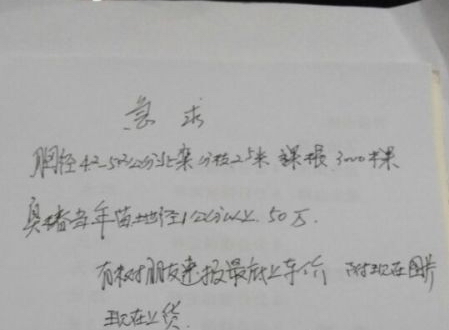 急求
胸径4.2-5公分法桐分枝2.5米 裸根 3000棵
臭椿当年苗 地径1公分以上. 50万.
有树朋友速报最低上车价 附现在图片
现在上货